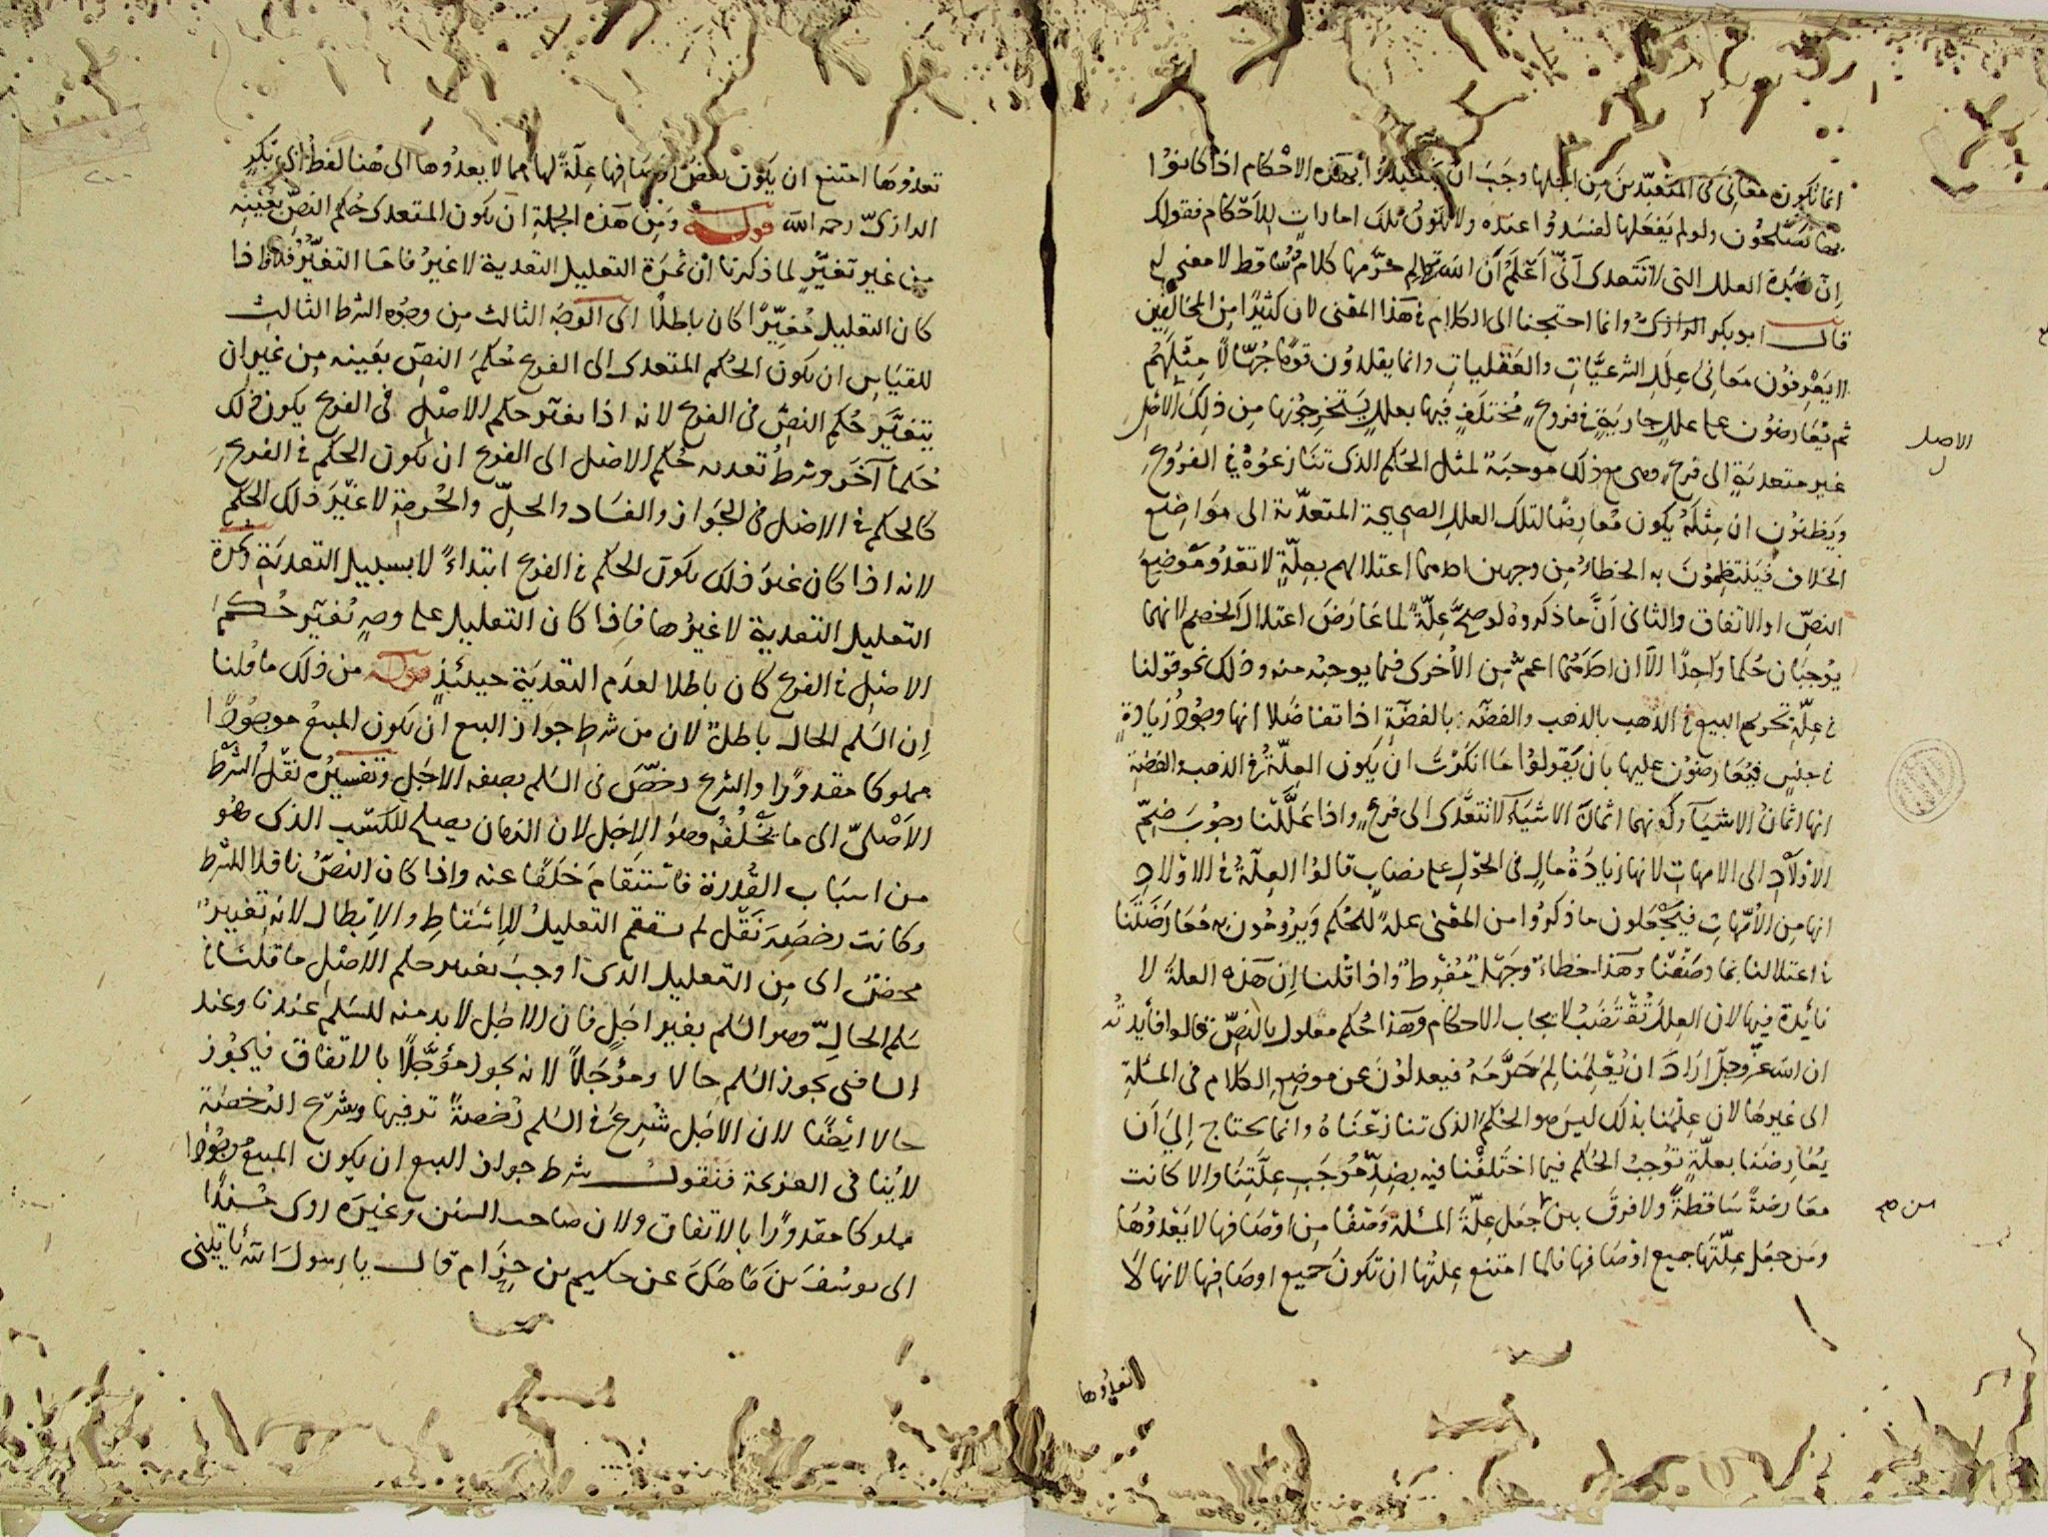 انما تكون معاني في المتعبدين من اجلها وجب ان يتعبدوا بهذه الاحكام اذا كانوا
بها يصلحون ولو لم يفعلها لفسدوا عنده ولا يكون تلك امارات للاحكام فقولك
ان فائدة العلل التي لا تتعدى اني اعلم ان الله تعالى لم حرمها كلام ساقط لا معنى له
قال ابو بكر الرازي وانما احتجنا الى الكلام في هذا المعنى لان كثيرا من المخالفين
لا يعرفون معاني علل الشرعيات والعقليات وانما يقلدون قوما جهالا مثلهم
ثم يعارضون على علل جارية في فروع مختلف فيها بعلل يستخرجونها من ذلك الاصل
الاصل
غير متعدية الى فرع وهي مع ذلك موجبة لمثل الحكم الذي تنازعوه في الفروع
ويظنون ان مثله يكون معارضا لتلك العلل الصحيحة المتعدية الى مواضع
الخلاف فينتظمون به الخطاء من وجهين احدهما اعتلالهم بعلة لا تعدو موضع
النص او الاتفاق والثاني ان ما ذكروه لو صح علة لما عارض اعتلال الخصم لانهما
يوجبان حكما واحدا الا ان احدهما اعم من الاخرى فيما يوجبه منه وذلك نحو قولنا
في علة تحريم البيع في الذهب بالذهب والفضة بالفضة اذا تفاضلا انها وجود زيادة
في جنس فيعارضون عليها بان يقولوا ما انكرت ان يكون العلة في الذهب والفضة
انها اثمان الاشياء وكونهما اثمان الاشياء لا تتعدى الى فرع واذا عللنا وجوب ضم
الاولاد الى الامهات لانها زيادة مال في الحول على نصاب قالوا العلة في الاولاد
انها من الامهات فيجعلون ما ذكروا من المعنى علة للحكم ويرومون به معارضتنا
في اعتلالنا بما وصفنا وهذا خطاء وجهل مفرط واذا قلنا ان هذه العلة لا
فائدة فيها لان العلل تقتضب لايجاب الاحكام وهذا حكم معلول بالنص قالوا فائدته
ان الله عز وجل اراد ان يعلمنا لم حرمه فيعدلون عن موضع الكلام في المسئلة
الى غيرها لان علمنا بذلك ليس هو الحكم الذي تنازعناه وانما يحتاج الى ان
يعارضنا بعلة توجب الحكم فيما اختلفنا فيه بضد موجب علتنا والا كانت
معارضة ساقطة ولا فرق بين جعل علة المسئلة وصفا من اوصافها لا يعدوها
من صح
ومن جعل علتها جميع اوصافها فلما امتنع علتها ان تكون جميع اوصافها لانها لا
لا تعدوها
تعدوها امتنع ان يكون بعض اوصافها علة لها مما لا يعدوها الى هنا لفظ ابي بكر
الرازي رحمه الله قوله ومن هذه الجملة ان يكون المتعدي حكم النص بعينه
من غير تغير لما ذكرنا ان ثمرة التعليل التعدية لا غير فاما التغير فلا فاذا
كان التعليل مغيرا كان باطلا اي الوجه الثالث من وجوه الشرط الثالث
للقياس ان يكون الحكم المتعدي الى الفرع حكم النص بعينه من غير ان
يتغير حكم النص في الفرع لانه اذا تغير حكم الاصل في الفرع يكون ذلك
حكما آخر وشرط تعدية حكم الاصل الى الفرع ان يكون الحكم في الفرع
كالحكم في الاصل في الجواز والفساد والحل والحرمة لا غير ذلك الحكم
لانه اذا كان غير ذلك يكون الحكم في الفرع ابتداء لا بسبيل التعدية وثمرة
التعليل التعدية لا غيرها فاذا كان التعليل على وجه تغير حكم
الاصل في الفرع كان باطلا لعدم التعدية حينئذ قوله من ذلك ما قلنا
ان السلم الحال باطل لان من شرط جواز البيع ان يكون المبيع موجودا
مملوكا مقدورا والشرع رخص في السلم بصفة الاجل وتفسيره نقل الشرط
الاصلي الى ما يخلفه وهو الاجل لان الزمان يصلح للكسب الذي هو
من اسباب القدرة فاستقام خلفا عنه واذا كان النص ناقلا للشرط
وكانت رخصة نقل لم يستقم التعليل للاسقاط والابطال لانه تغيير
محض اي من التعليل الذي اوجب تغيير حكم الاصل ما قلنا في
سلم الحال وهو السلم بغير اجل فان الاجل لا بد منه للسلم عندنا وعند
الشافعي يجوز السلم حالا ومؤجلا لانه يجوز مؤجلا بالاتفاق فيجوز
حالا ايضا لان الاجل شرع في السلم رخصة ترفيها وشرع الرخصة
لا ينافي العزيمة فنقول شرط جواز البيع ان يكون المبيع موجودا
مملوكا مقدورا بالاتفاق ولان صاحب السنن وغيره روى مسندا
الى يوسف بن ماهك عن حكيم بن حزام قال يا رسول الله يأتيني